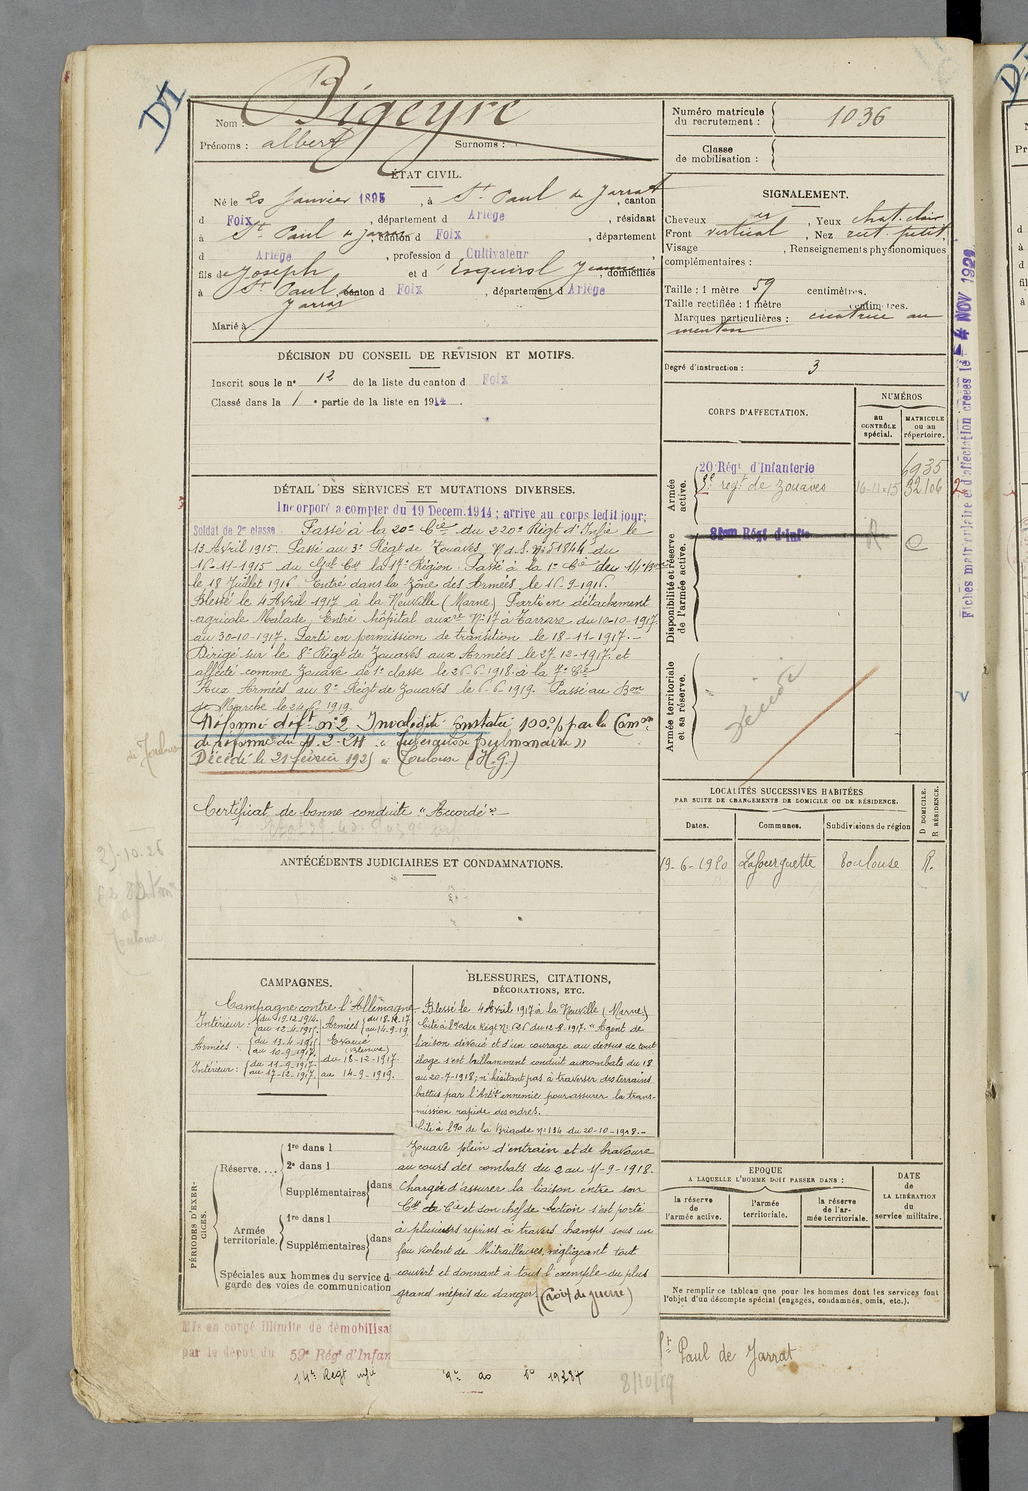 DI
Bigeyre
Nom :
Prénoms : albert Surnoms :
Numéro matricule du recrutement : 1036
Classe de mobilisation :
ÉTAT CIVIL.
Né le 20 Janvier 1895, à St Paul de Jarrat, canton
d Foix, département d Ariège, résidant
à St Paul de Jarrat canton d Foix, département
d Ariège, profession d Cultivateur
fils de Joseph et d' Esquirol Jeanne, domiciliés
à St Paul de Jarrat, canton d Foix, département d Ariège
Marié à
SIGNALEMENT.
Cheveux Yeux chat. clair
Front vertical, Nez rect. petit
Visage , Renseignements physionomiques
complémentaires :
Taille : 1 mètre 59 centimètres.
Taille rectifiée : 1 mètre centimètres.
Marques particulières : cicatrice au
menton
Degré d'instruction : 3
DÉCISION DU CONSEIL DE RÉVISION ET MOTIFS.
Inscrit sous le n° 12 de la liste du canton d Foix
Classé dans la 1e partie de la liste en 1914.
CORPS D'AFFECTATION.
NUMÉROS
au CONTRÔLE spécial.
MATRICULE ou au répertoire.
Armée active.
20 Régt d'Infanterie 6935
3e régt de Zouaves 16-11-15 32106
Disponibilité et réserve de l'armée active.
Régt d'Infie
Armée territoriale et sa réserve.
Décédé
DÉTAIL DES SERVICES ET MUTATIONS DIVERSES.
Incorporé à compter du 19 Décem. 1914 ; arrivé au corps ledit jour;
Soldat de 2e classe. Passé à la 20e Cie du 220e Régt d'Infie le
13 Avril 1915. Passé au 3e Régt de Zouaves V. d. S. n° 51844 du
16-11-1915 du Gal Ct la 17e Région. Passé à la 1e Cie du 14e Bon
le 18 Juillet 1916. Entré dans la zône des Armées le 16-9-1916.
Blessé le 4 Avril 1917 à la Neuville (Marne) Parti en détachement
agricole Malade, Entré hôpital auxre N° 17 à Tarrare du 10-10-1917
au 30-10-1917. Parti en permission de transition le 18-11-1917.-
Dirigé sur le 8e Régt de Zouaves aux Armées le 27-12-1917 et
affecté comme Zouave de 1e classe le 26-6-1918 à la 7e Cie
Aux Armées au 8e Régt de Zouaves le 6-6-1919. Passé au Bon
de Marche le 24-6-1919.
Réformé deft n° 2 Invalidité constatée 100% par la Comon
de réforme du
de Toulouse
"Tuberculose pulmonaire"
Décédé le 21 février 1925 à Toulouse (H.G.)
Certificat de bonne conduite "Accordé"
ANTÉCÉDENTS JUDICIAIRES ET CONDAMNATIONS.
LOCALITÉS SUCCESSIVES HABITÉES
PAR SUITE DE CHANGEMENTS DE DOMICILE OU DE RÉSIDENCE.
Dates. Communes. Subdivisions de région D DOMICILE. R RÉSIDENCE.
19-6-1920 Lafourguette Toulouse R.
Fiches matriculaire et d'affectation créées le -4 NOV 1929
CAMPAGNES.
Campagne contre l'Allemagne
Intérieur : du 19.12.1914. au 12-4-1915. Armées du 18.12.17 au 14-9-19
Armées : du 13-4-1915 au 10-9-1917. Evacué (Blessure)
Intérieur : du 11-9-1917 au 17-12-1917. du 18-12-1917. au 14-9-1919.
BLESSURES, CITATIONS,
DÉCORATIONS, ETC.
Blessé le 4 Avril 1917 à la Neuville (Marne)
Cité à l'Ordre du Régt N° 126 du 12-8-1917. "Agent de
liaison dévoué et d'un courage au dessus de tout
éloge s'est brillamment conduit aux combats du 18
au 20-7-1918; n'hésitant pas à traverser des terrains
battus par l'Artie ennemie pour assurer la trans-
mission rapide des ordres.
Cité à l'Ordre de la Brigade n° 134 du 20-10-1918.-
Zouave plein d'entrain et de bravoure
au cours des combats du 2 au 11-9-1918.
Chargé d'assurer la liaison entre son
Ct de Cie et son chef de Section s'est porté
à plusieurs reprises à travers champs sous un
feu violent de Mitrailleuses, négligeant tout
couvert et donnant à tous l'exemple du plus
grand mépris du danger. (Croix de guerre)
PÉRIODES D'EXERCICES.
Réserve....
1re dans l
2e dans l
Supplémentaires dans
Armée territoriale.
1re dans l
Supplémentaires dans
Spéciales aux hommes du service de
garde des voies de communication
EPOQUE
A LAQUELLE L'HOMME DOIT PASSER DANS :
la réserve de l'armée active. l'armée territoriale. la réserve de l'armée territoriale.
DATE de LA LIBÉRATION du service militaire.
Ne remplir ce tableau que pour les hommes dont les services font
l'objet d'un décompte spécial (engagés, condamnés, omis, etc.).
Mis en congé illimité de démobilisat
par le dépôt du 59e Régt d'Infan
14e Régt infie
St Paul de Jarrat
8/10/19